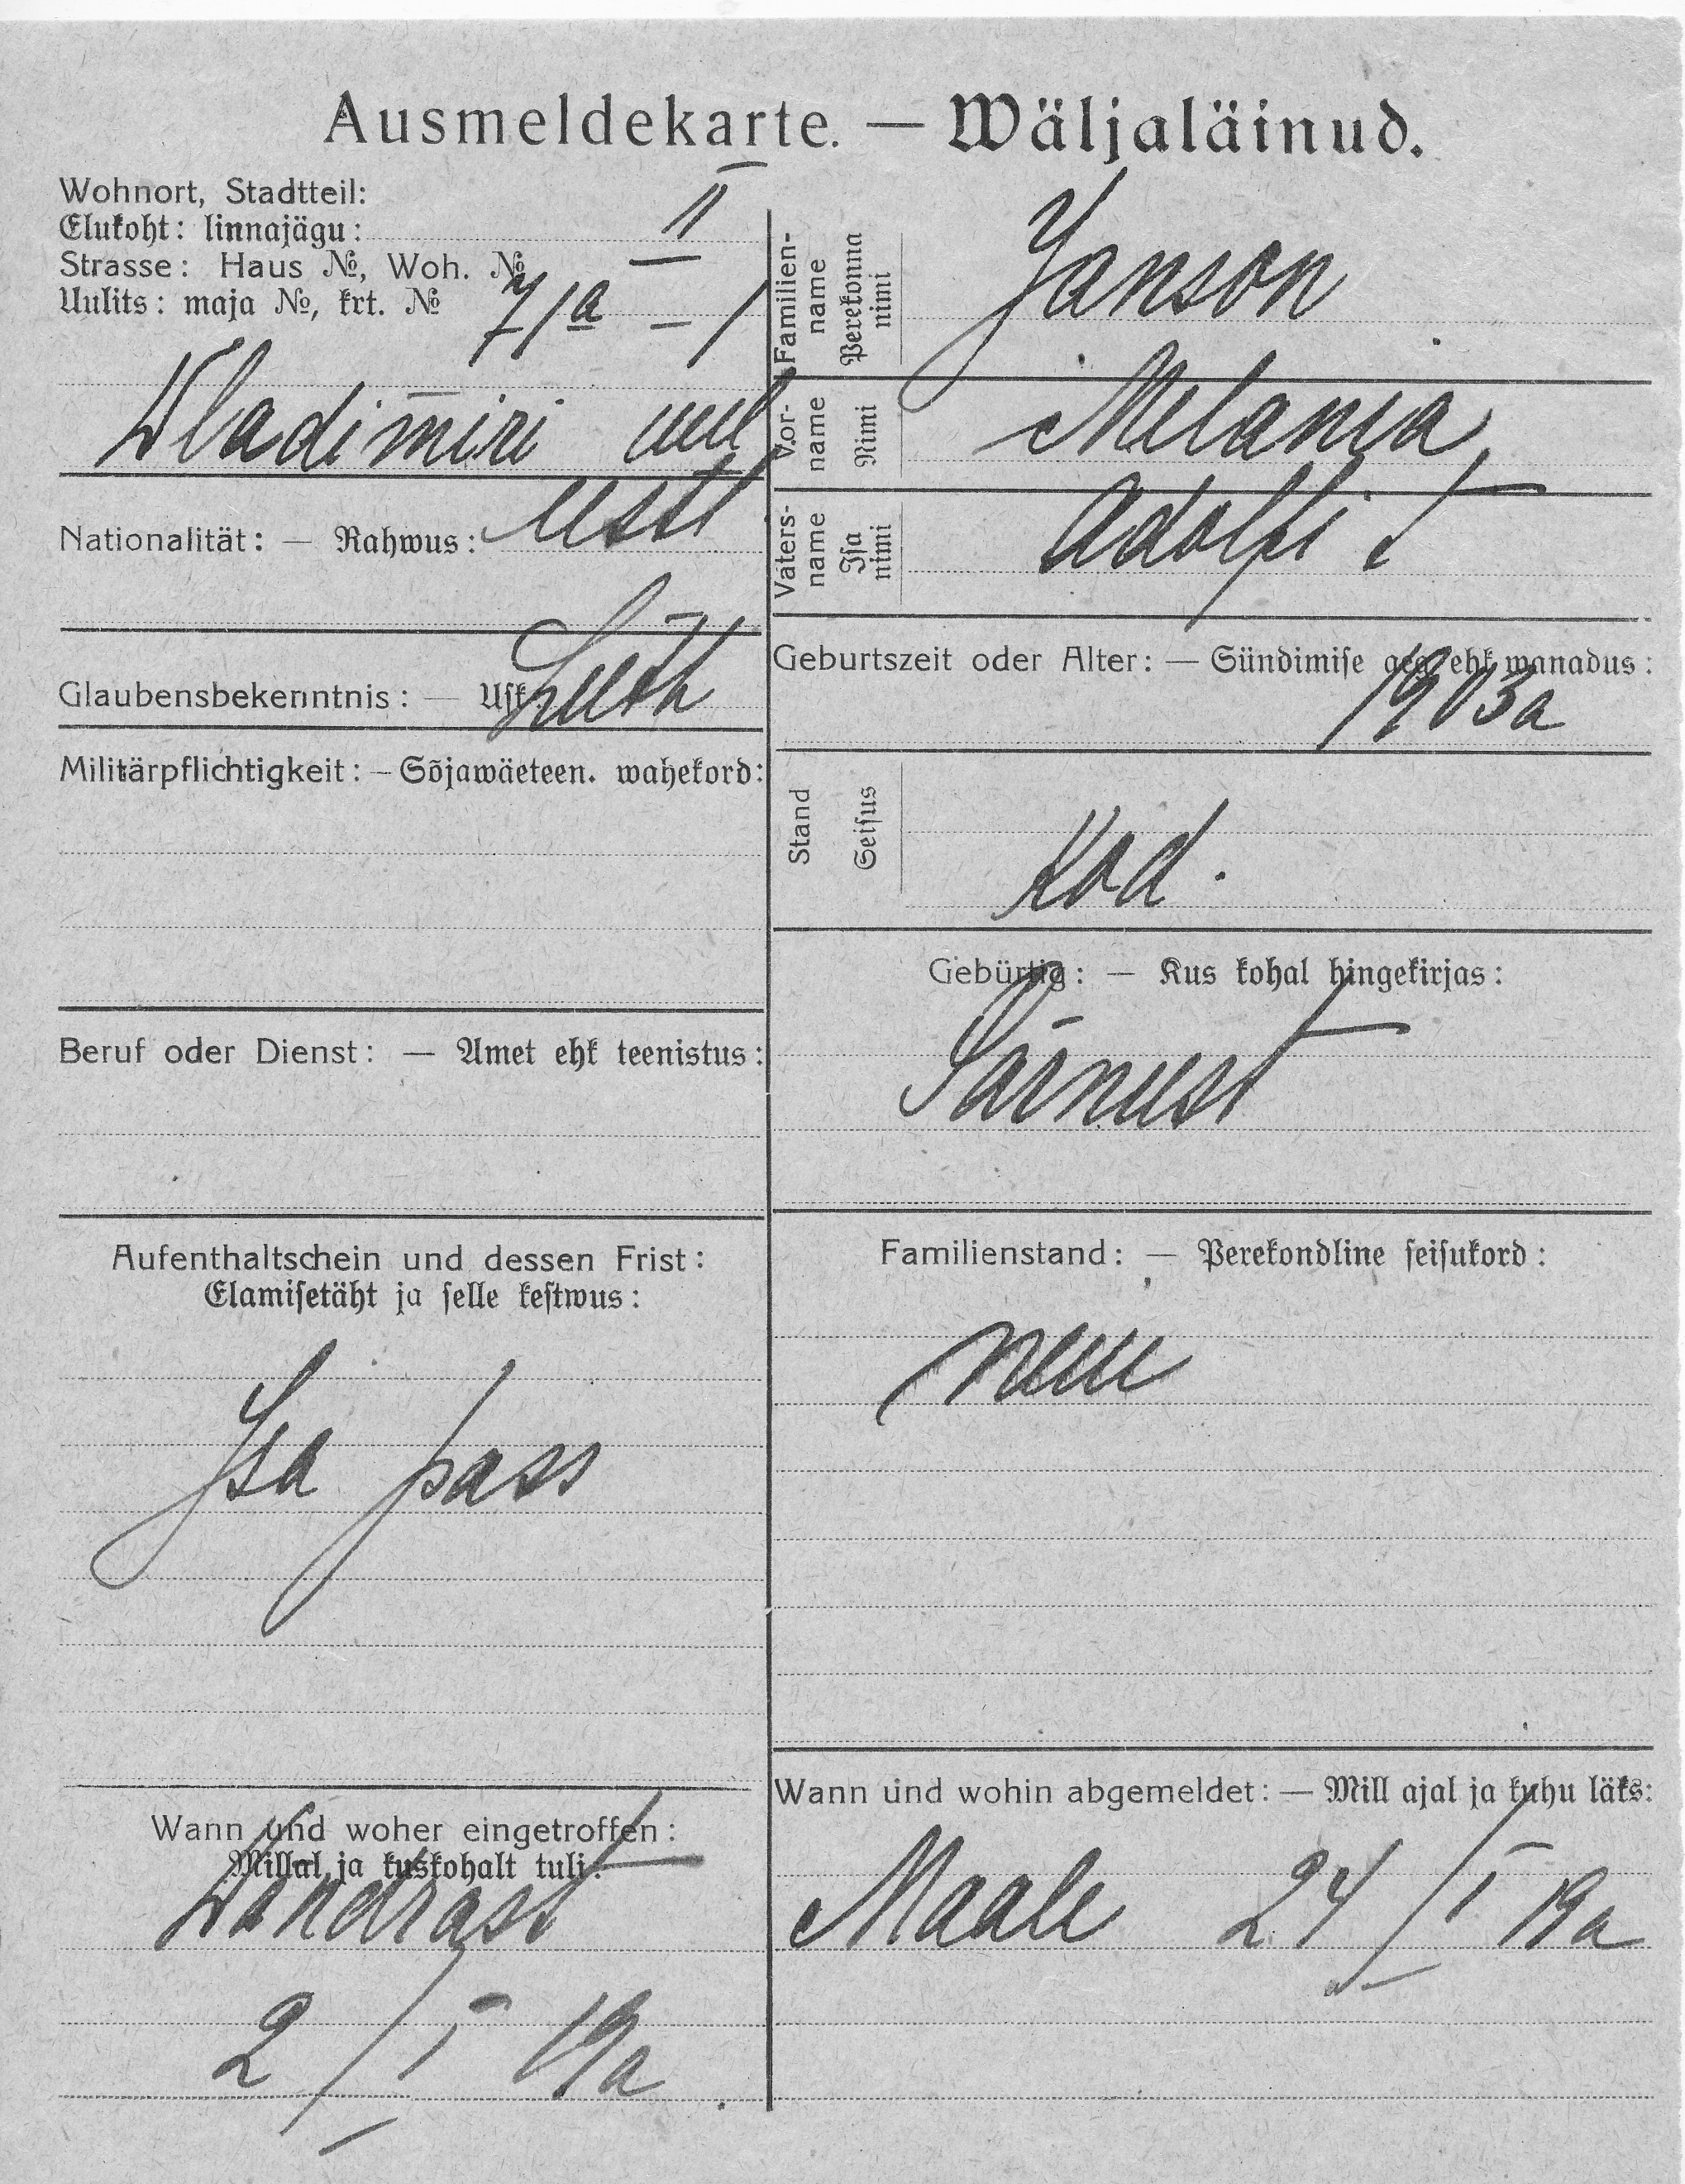 Ausmeldekarte. — Wäljaläinud.
Wohnort, Stadtteil:
Elukoht: linnajägu: II
Strasse: Haus №, Woh. №
Uulits: maja №, krt. № 7/a – 1
Wladimiri uul
Nationalität: — Rahwus: eesti
Glaubensbekenntnis: — Usk: Luth
Militärpflichtigkeit: – Sõjawäeteen. wahekord:
Beruf oder Dienst: — Amet ehk teenistus:
Aufenthaltschein und dessen Frist:
Elamisetäht ja selle kestwus:
Isa pass
Wann und woher eingetroffen:
Millal ja kuskohalt tuli:
Wändrast
2/I 19a
Familien-
name
Perekonna
nimi
Janson
Vor-
name
Nimi
Melania,
Vaters-
name
Isa
nimi
Adolfi t
Geburtszeit oder Alter: — Sündimise aeg ehk wanadus:
1903a
Stand
Seisus
Kod.
Gebürtig: — Kus kohal hingekirjas:
Pärnust
Familienstand: — Perekondline seisukord:
neiu
Wann und wohin abgemeldet: — Mill ajal ja kuhu läks:
Maale 24/I 19a